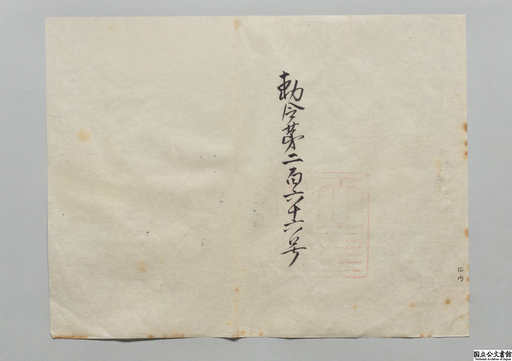 勅令第二百六十六号
仁内
国立公文書館
National Archives of Japan